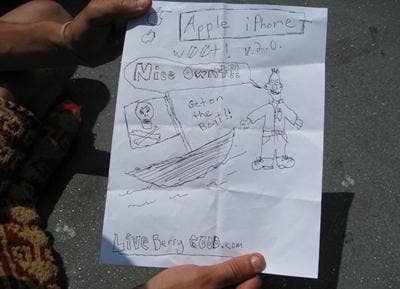 Apple iPhone
w00t! v.2.0.
Nice Ownt!!
Get on
the
Boat!!
Live Berry GOLD.com